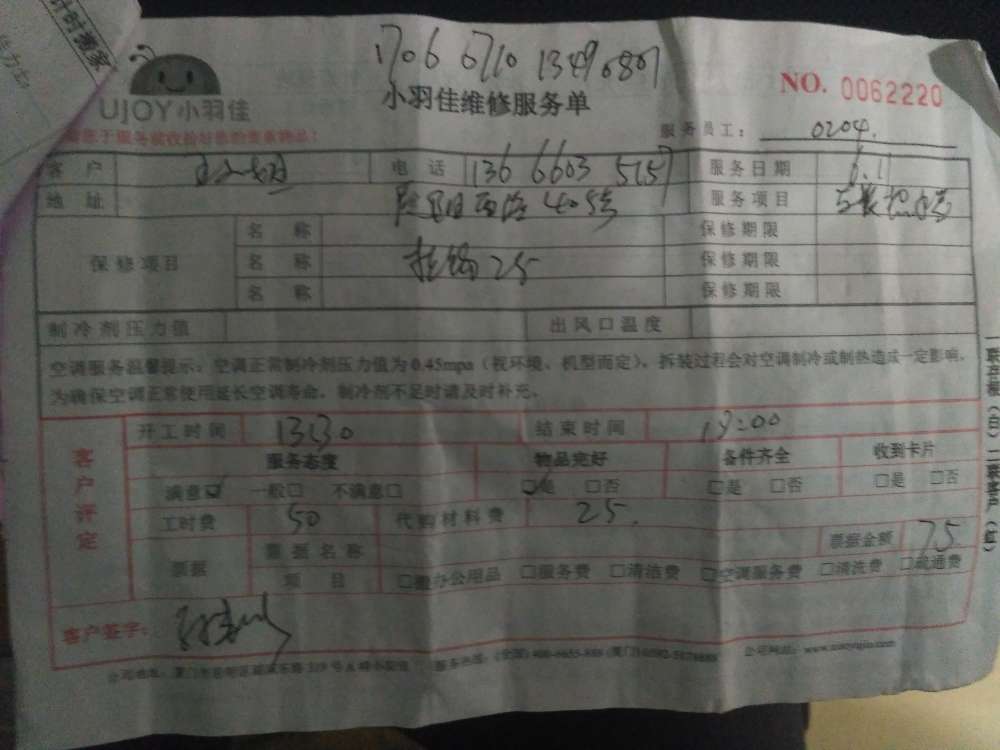 计时搬家
1706 6710 13490807
UJOY小羽佳
小羽佳维修服务单
NO. 0062220
服务员工: 0204.
客户 电话 136 6603 5157 服务日期 6.1
地址 40号 服务项目
保修项目 名称 保修期限
名称 25 保修期限
名称 保修期限
制冷剂压力值 出风口温度
空调服务温馨提示:空调正常制冷剂压力值为0.45mpa(视环境、机型而定),拆装过程会对空调制冷或制热造成一定影响,
为确保空调正常使用延长空调寿命,制冷剂不足时请及时补充。
客户评定
开工时间 13:30 结束时间 19:00
服务态度 物品完好 备件齐全 收到卡片
满意☑ 一般□ 不满意□ ☑是 □否 □是 □否 □是 □否
工时费 50 代购材料费 25.
票据 票据名称 票据金额 75
项目 □搬办公用品 □服务费 □清洁费 □空调服务费 □清洗费 □疏通费
客户签字:
一联存根(白)二联客户(红)